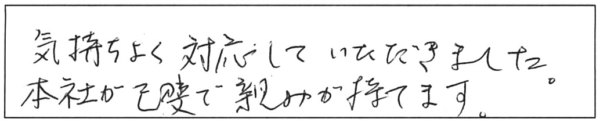 気持ちよく対応していただきました。
本社が地元で親みが持てます。